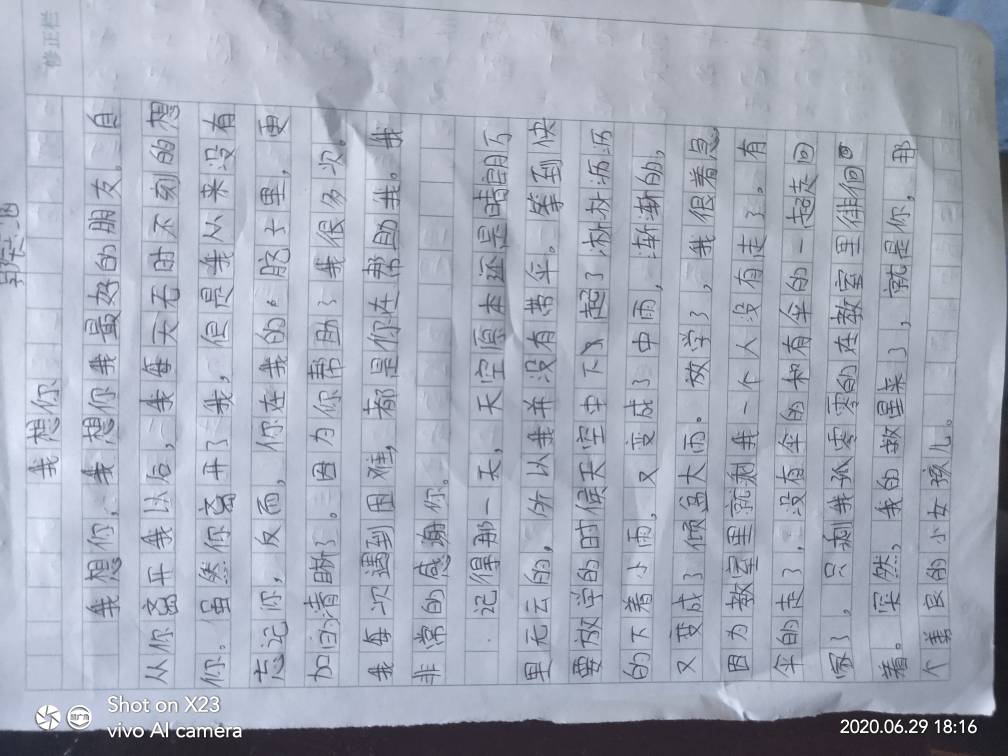 修正栏
我想你
我想你，我想你我最好的朋友。自
从你离开我以后，我每天无时不刻的想
你。虽然你离开了我，但是我从来没有
忘记你，反而，你在我的脑子里，更
加的清晰了。因为你帮助了我很多次。
我每次遇到困难，都是你在帮助我。我
非常的感谢你。
记得那一天，天空原本还是晴朗万
里无云的，所以我并没有带伞。等到快
要放学的时侯天空中下起了淅淅沥沥
的下着小雨，又变成了中雨，渐渐的，
又变成了倾盆大雨。放学了，我很着急
因为教室里就剩我一个人没有走了。有
伞的走了，没有伞的和有伞的一起走回
家了，只剩我孤零零的在教室里徘徊
着。突然，我的救星来了，就是你，那
个善良的小女孩儿。
Shot on X23
vivo AI camera
2020.06.29 18:16